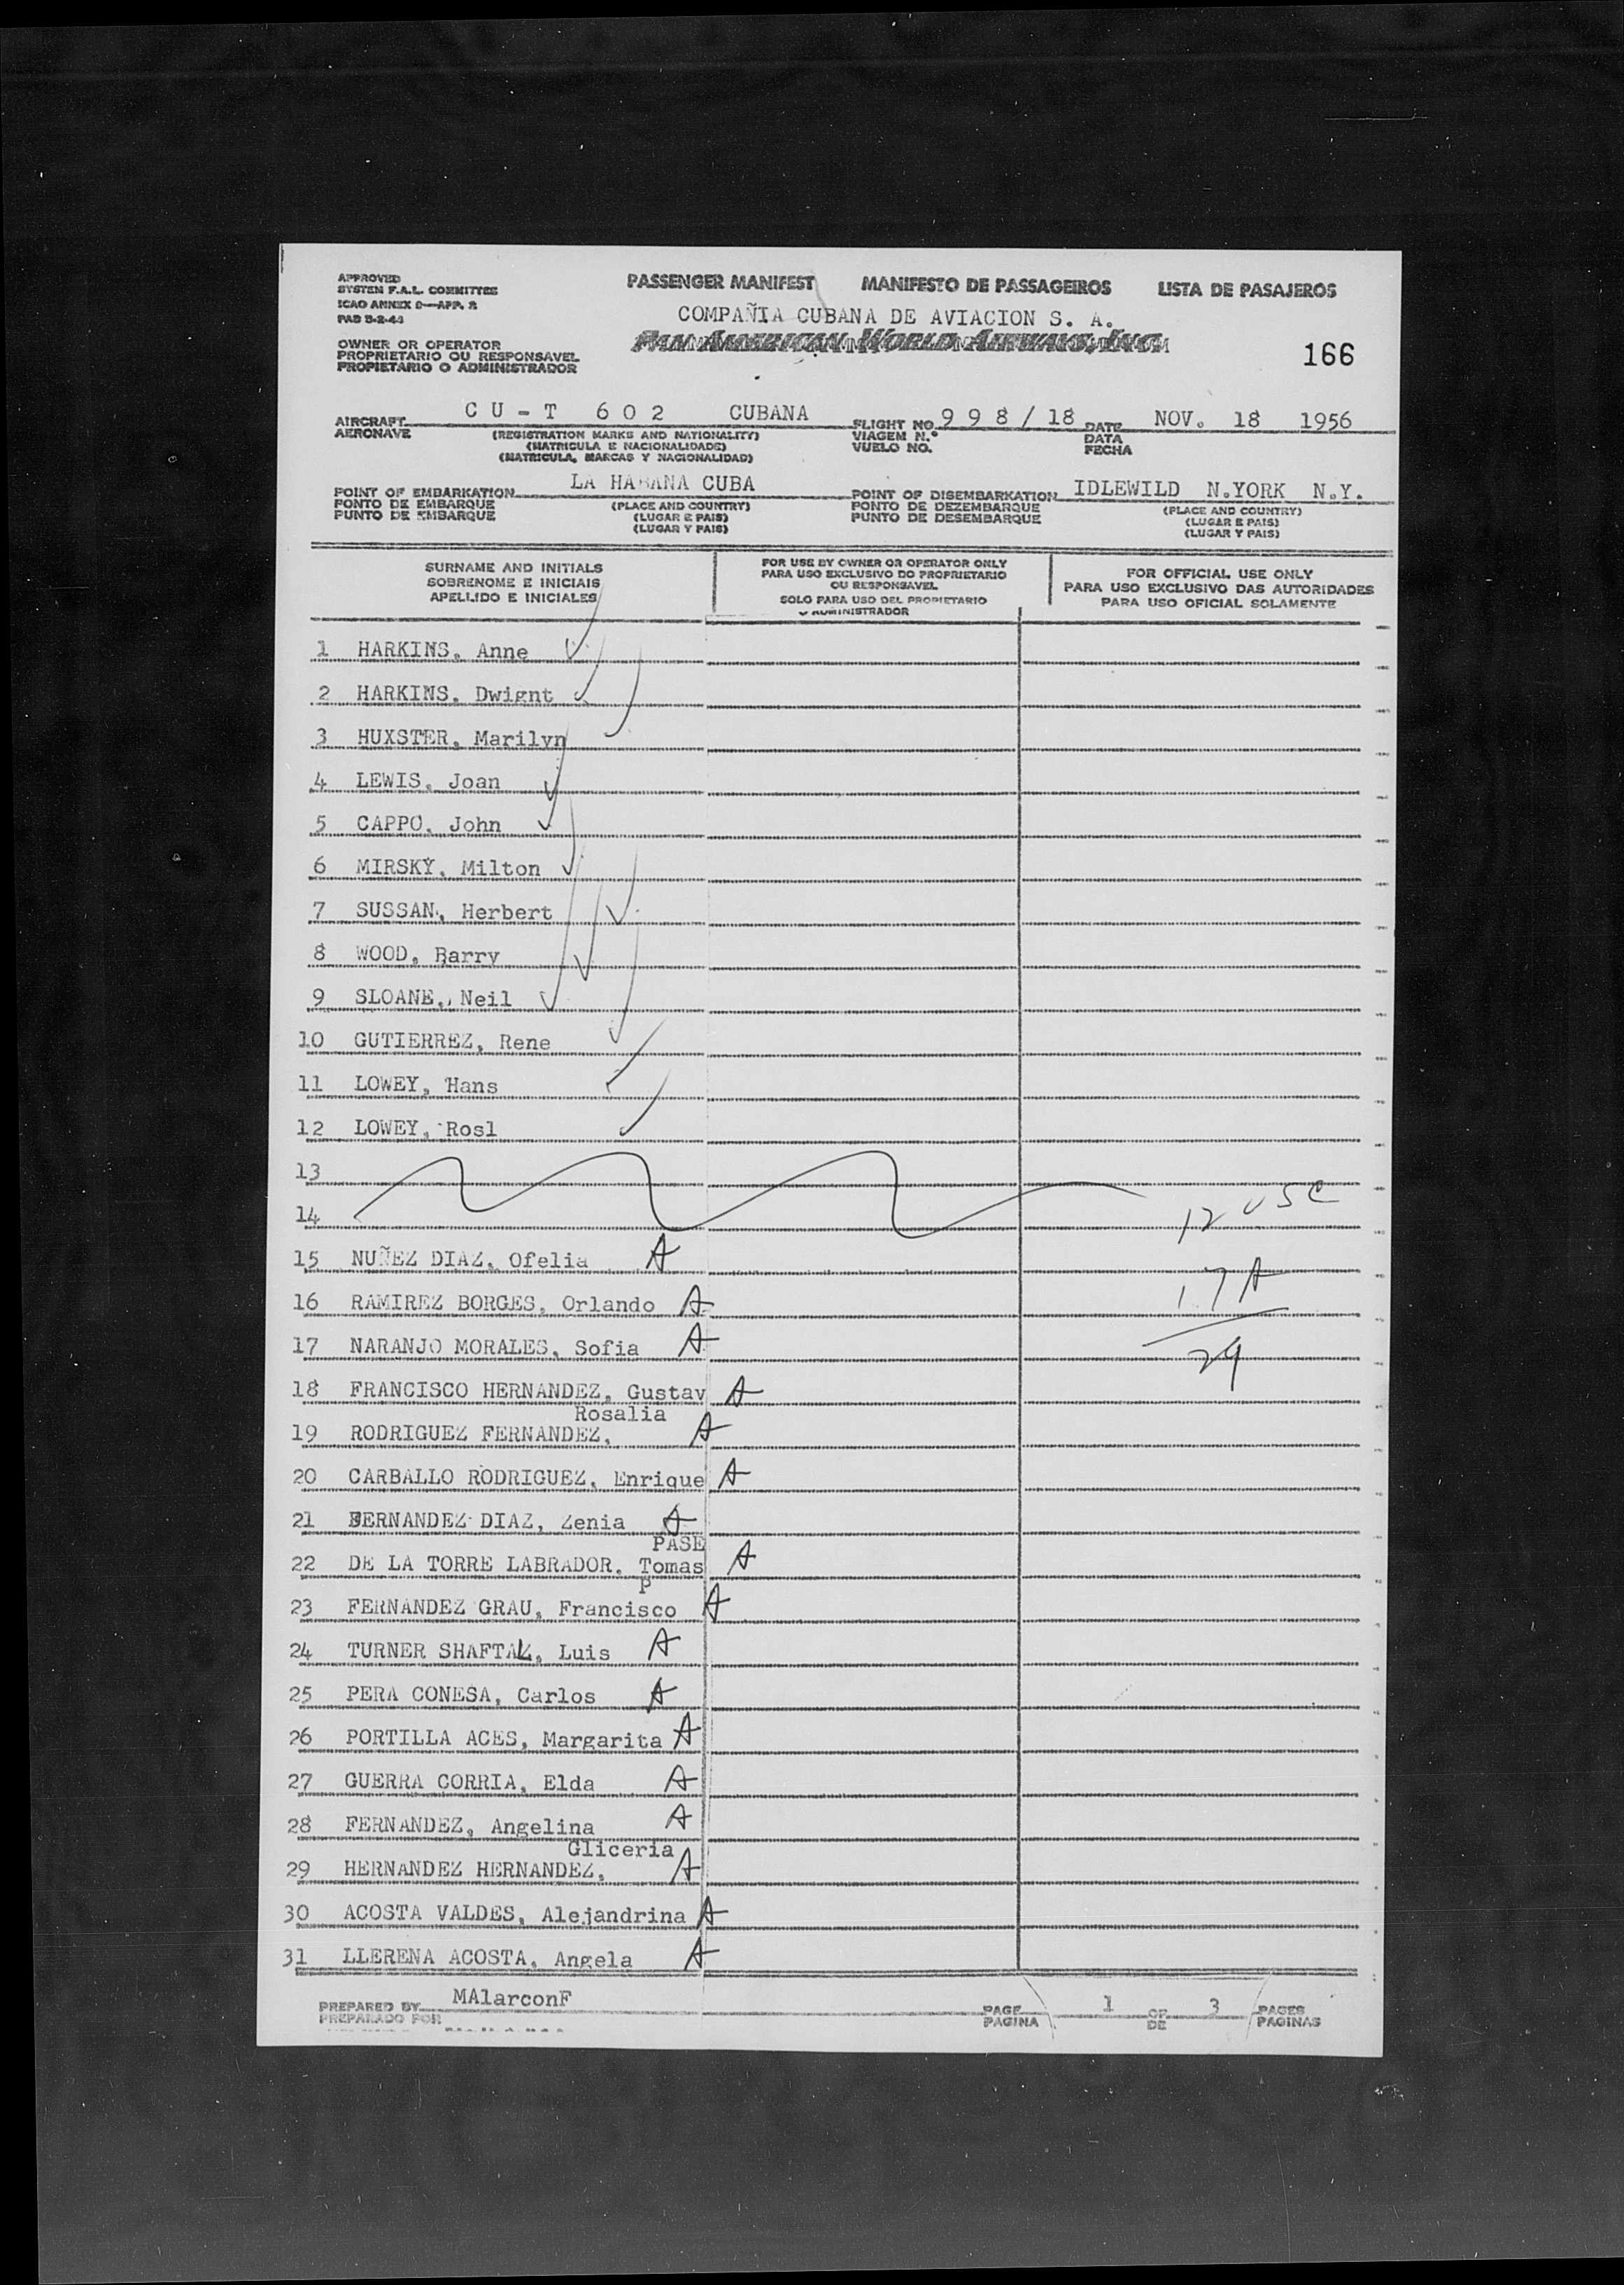 APPROVED
SYSTEM F.A.L. COMMITTEE
ICAO ANNEX 9—APP. 2
PAB 5-2-44
PASSENGER MANIFEST MANIFESTO DE PASSAGEIROS LISTA DE PASAJEROS
COMPAÑIA CUBANA DE AVIACION S. A.
PAN AMERICAN WORLD AIRWAYS, INC.
OWNER OR OPERATOR
PROPRIETARIO OU RESPONSAVEL
PROPIETARIO O ADMINISTRADOR
166
AIRCRAFT CU-T 602 CUBANA FLIGHT NO 998/18 DATE NOV. 18 1956
AERONAVE (REGISTRATION MARKS AND NATIONALITY) VIAGEM N.º DATA
(MATRICULA E NACIONALIDADE) VUELO NO. FECHA
(MATRICULA, MARCAS Y NACIONALIDAD)
POINT OF EMBARKATION LA HABANA CUBA POINT OF DISEMBARKATION IDLEWILD N.YORK N.Y.
PONTO DE EMBARQUE (PLACE AND COUNTRY) PONTO DE DEZEMBARQUE (PLACE AND COUNTRY)
PUNTO DE EMBARQUE (LUGAR E PAIS) PUNTO DE DESEMBARQUE (LUGAR E PAIS)
(LUGAR Y PAIS) (LUGAR Y PAIS)
SURNAME AND INITIALS
SOBRENOME E INICIAIS
APELLIDO E INICIALES
FOR USE BY OWNER OR OPERATOR ONLY
PARA USO EXCLUSIVO DO PROPRIETARIO
OU RESPONSAVEL
SOLO PARA USO DEL PROPIETARIO
O ADMINISTRADOR
FOR OFFICIAL USE ONLY
PARA USO EXCLUSIVO DAS AUTORIDADES
PARA USO OFICIAL SOLAMENTE
1 HARKINS, Anne
2 HARKINS, Dwignt
3 HUXSTER, Marilyn
4 LEWIS, Joan
5 CAPPO, John
6 MIRSKY, Milton
7 SUSSAN, Herbert
8 WOOD, Barry
9 SLOANE, Neil
10 GUTIERREZ, Rene
11 LOWEY, Hans
12 LOWEY, Rosl
13
14 12 USC
15 NUÑEZ DIAZ, Ofelia A
16 RAMIREZ BORGES, Orlando A 17 A
17 NARANJO MORALES, Sofia A 29
18 FRANCISCO HERNANDEZ, Gustav A
Rosalia
19 RODRIGUEZ FERNANDEZ, A
20 CARBALLO RODRIGUEZ, Enrique A
21 FERNANDEZ DIAZ, Zenia A
PASE
22 DE LA TORRE LABRADOR, Tomas A
P
23 FERNANDEZ GRAU, Francisco A
24 TURNER SHAFTAL, Luis A
25 PERA CONESA, Carlos A
26 PORTILLA ACES, Margarita A
27 GUERRA CORRIA, Elda A
28 FERNANDEZ, Angelina A
Gliceria
29 HERNANDEZ HERNANDEZ, A
30 ACOSTA VALDES, Alejandrina A
31 LLERENA ACOSTA, Angela A
PREPARED BY MAlarconF PAGE 1 OF 3 PAGES
PREPARADO POR PAGINA DE PAGINAS